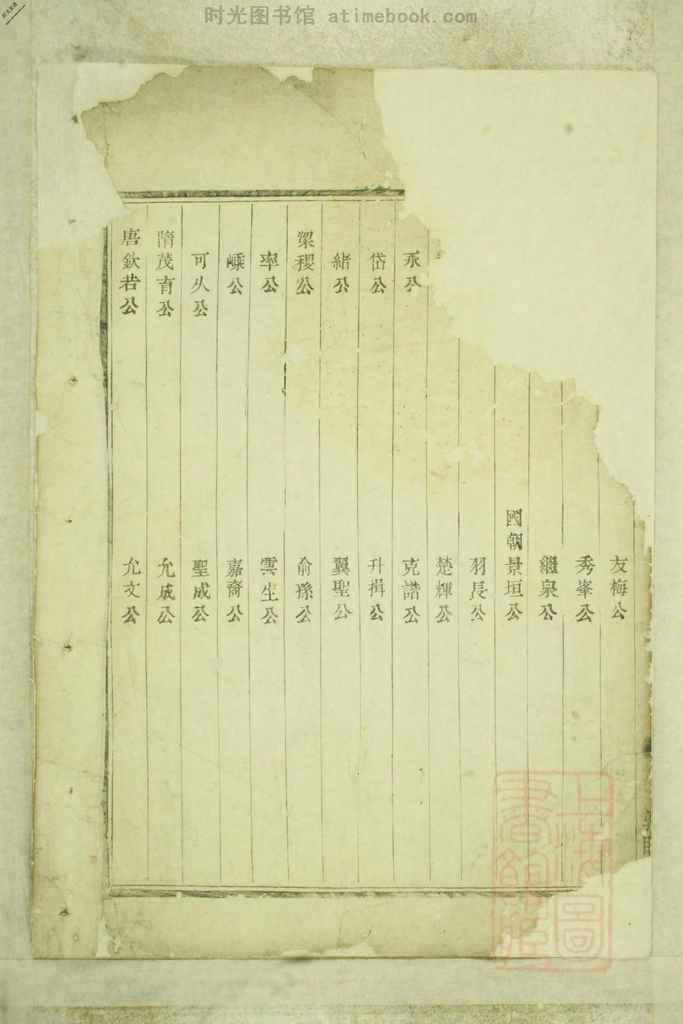 时光图书馆 atimebook.com
永公
岱公
緒公
梁稷公
率公
嵊公
可久公
隋茂育公
唐欽若公
友梅公
秀峯公
繼泉公
國朝景垣公
羽長公
楚輝公
克諧公
升揖公
翼聖公
俞孫公
雲生公
嘉裔公
聖成公
允成公
允文公
上海圖書館藏